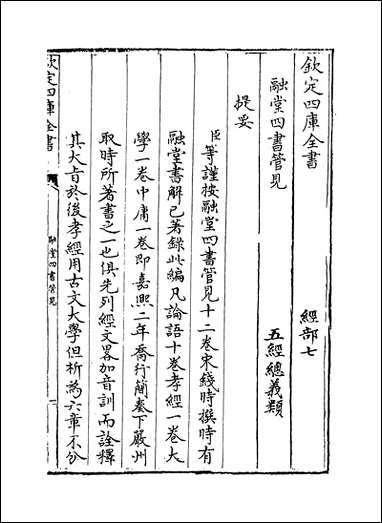 欽定四庫全書 經部七
融堂四書管見 五經總義類
提要
臣等謹按融堂四書管見十二卷宋錢時撰時有
融堂書解已著錄此編凡論語十卷孝經一卷大
學一卷中庸一卷即嘉熙二年喬行簡奏下嚴州
取時所著書之一也俱先列經文畧加音訓而詮釋
其大旨於後孝經用古文大學但析為六章不分
欽定四庫全書 融堂四書管見 一